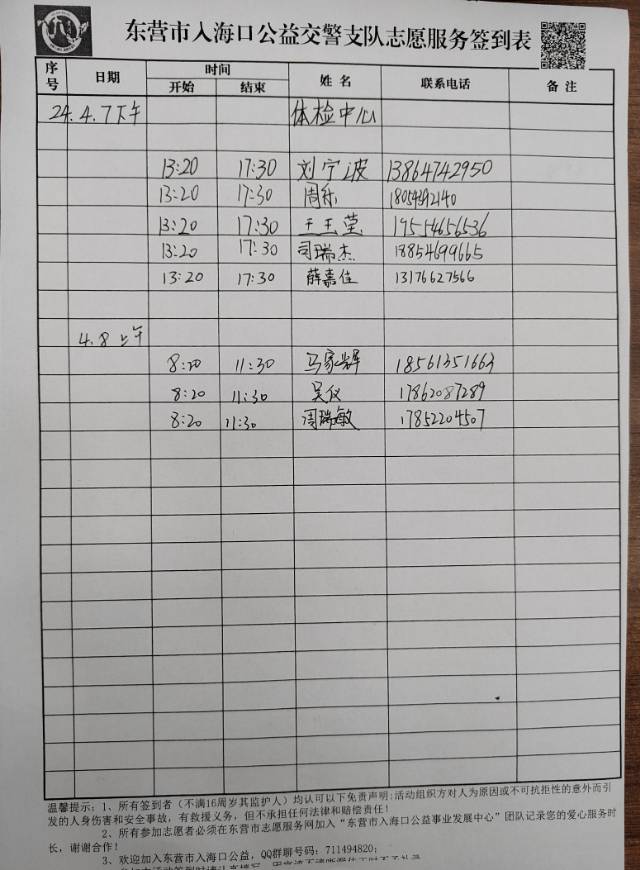 东营市入海口公益交警支队志愿服务签到表
序号 日期 时间 姓名 联系电话 备注
开始 结束
24.4.7下午 体检中心
13:20 17:30 刘宁波 13864742950
13:20 17:30 周乐
13:20 17:30 王玉莹 19554656536
13:20 17:30 司瑞杰 18854699665
13:20 17:30 薛嘉佳 13176627566
4.8上午
8:20 11:30 马家辉 18561351663
8:20 11:30 吴仪 17862087289
8:20 11:30 周瑞敏 17852204507
温馨提示:1、所有签到者(不满16周岁其监护人)均认可以下免责声明:活动组织方对人为原因或不可抗拒性的意外而引
发的人身伤害和安全事故,有救援义务,但不承担任何法律和赔偿责任!
2、所有参加志愿者必须在东营市志愿服务网加入“东营市入海口公益事业发展中心”团队记录您的爱心服务时
长,谢谢合作!
3、欢迎加入东营市入海口公益,QQ群聊号码:711494820;